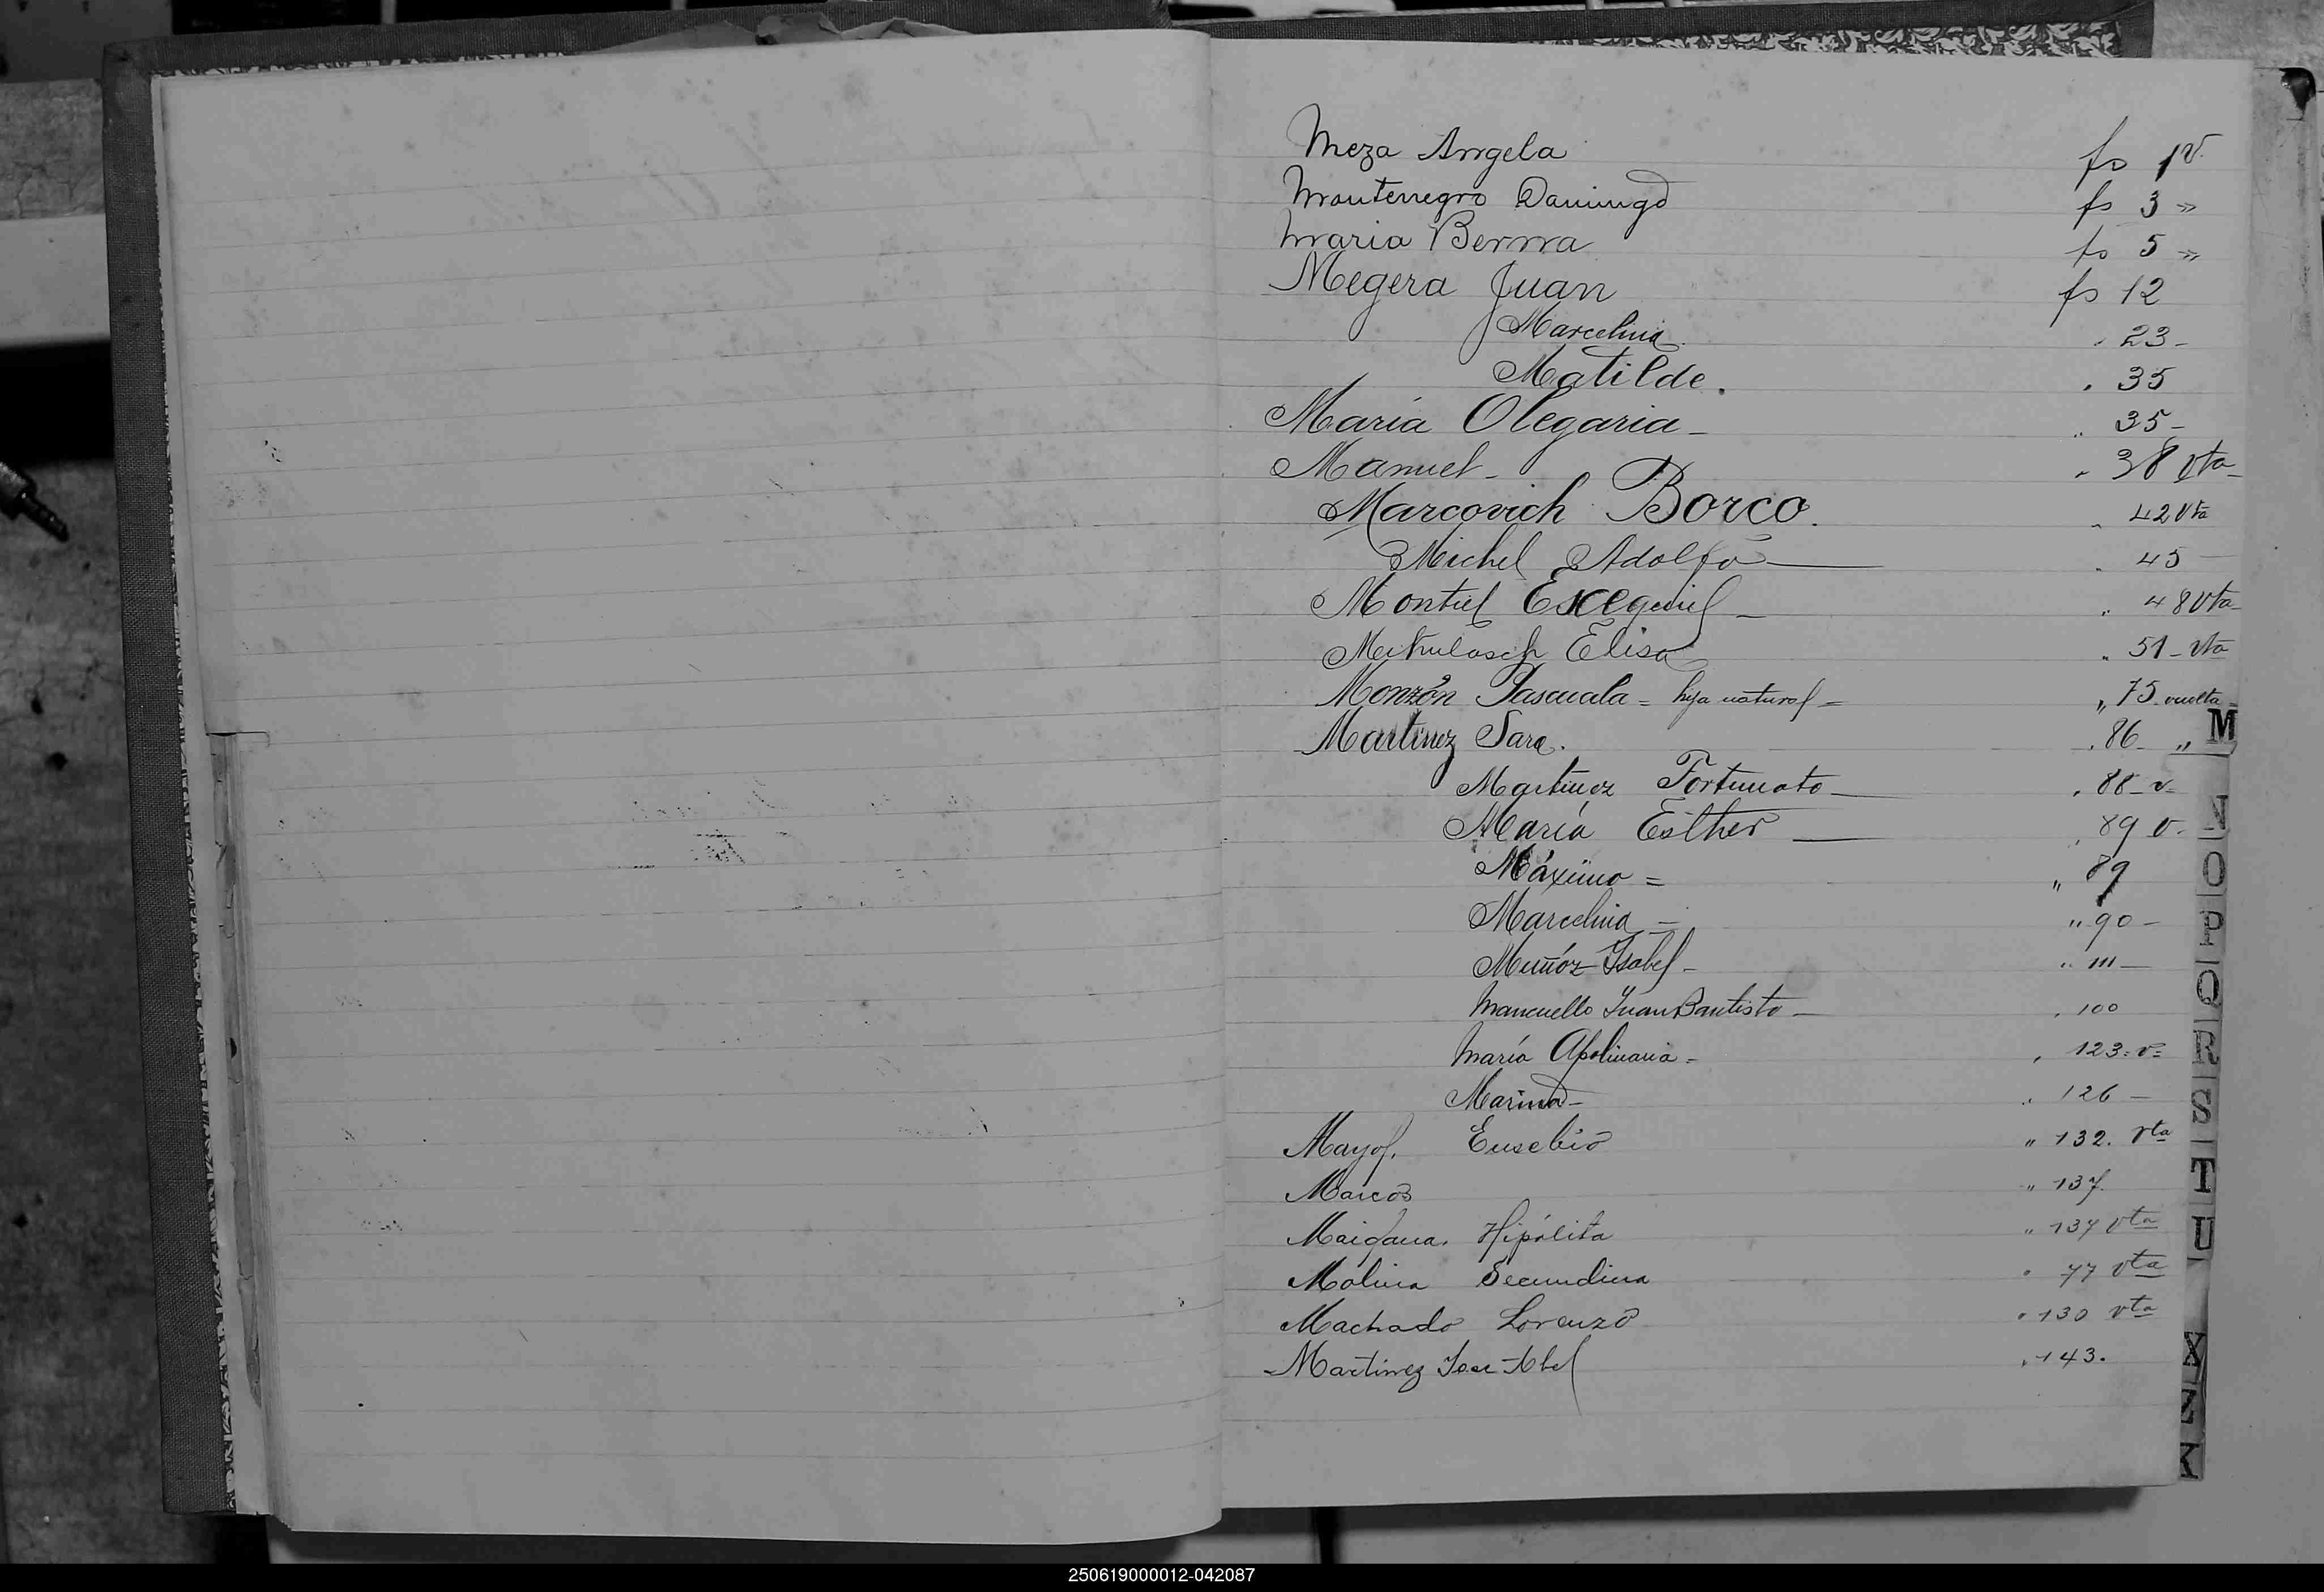 Meza Angela fs 1 v.
Montenegro Domingo fs 3 »
Maria Berma fs 5 »
Megera Juan fs 12
Marcelina . 23 -
Matilde. . 35
María Olegaria - .. 35 -
Manuel - . 38 vta -
Marcovich Borco. . 42 vta
Michel Adolfo — . 45 —
Montiel Exequiel - .. 48 vta -
Elisa . 51 - vta
Monzón Pascuala = hija natural = „ 75 vuelta
Martinez Sara. . 86 - „
M
Martinez Fortunato — . 88 - v -
María Esther — . 89 v.
N
Máximo = „ 89
O
Marcelina - „ 90 -
P
Muñóz Isabel - .. 111 —
Q
Mancuello Juan Bautista - . 100
María Apolinaria = . 123 = v =
R
Marina - .. 126 —
S
Mayol. Eusebio „ 132. vta
Marcos „ 137.
T
Maidana. Hipólita „ 137 vta
U
Molina Secundina . 77 vta
Machado Lorenzo . 130 vta
Martinez Jose Abel . 143.
X
250619000012-042087